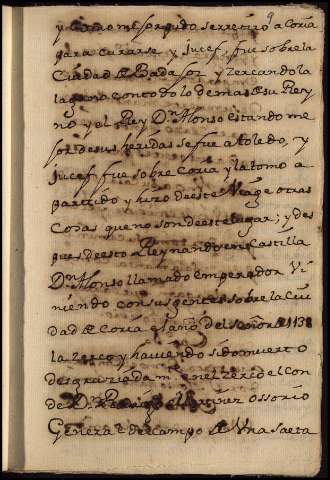 y como mal herido se rretiró a Coria
para curarse y Jucef, fue sobre la
Ciudad de Badajoz y zercandola
la gano con todo lo demas de su Rey
no y el Rey Dn. Alonso estando me
jor de sus heridas se fue a toledo, y
Jucef fue sobre Coria y la tomo a
partido y hizo de este Viage otras
Cosas que no son de este lugar; y des
pues de esto Reynando en Castilla
Dn. Alonso llamado emperador Vi
niendo con sus gentes sobre la Ciu
dad de Coria el año del señor de 1138
la zerco y haviendo sido muerto
desgraziadamte. en el zerco el Con
de D. Rodrigo Martinez Ossorio
General del campo de Una saeta